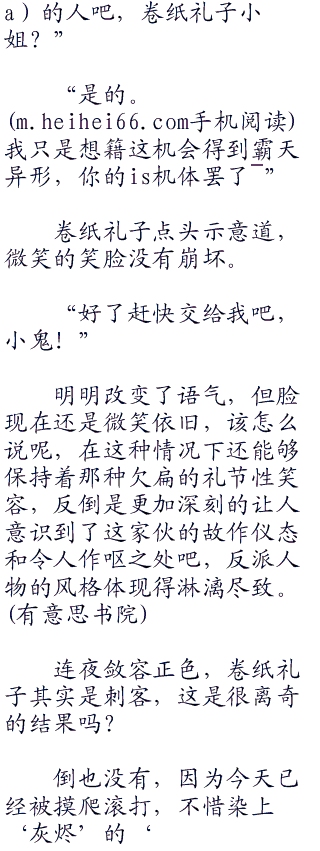 a）的人吧，卷纸礼子小
姐？”
“是的。
(m.heihei66.com手机阅读)
我只是想籍这机会得到霸天
异形，你的is机体罢了¯”
卷纸礼子点头示意道，
微笑的笑脸没有崩坏。
“好了赶快交给我吧，
小鬼！”
明明改变了语气，但脸
现在还是微笑依旧，该怎么
说呢，在这种情况下还能够
保持着那种欠扁的礼节性笑
容，反倒是更加深刻的让人
意识到了这家伙的故作仪态
和令人作呕之处吧，反派人
物的风格体现得淋漓尽致。
(有意思书院)
连夜敛容正色，卷纸礼
子其实是刺客，这是很离奇
的结果吗？
倒也没有，因为今天已
经被摸爬滚打，不惜染上
‘灰烬’的‘